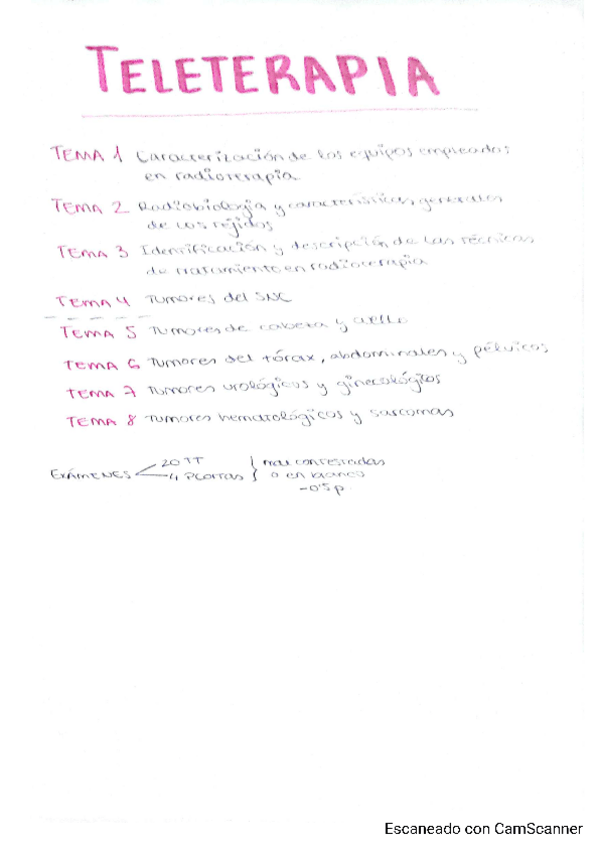 TELETERAPIA
TEMA 1 Caracterización de los equipos empleados
en radioterapia
TEMA 2 Radiobiología y características generales
de los tejidos
TEMA 3 Identificación y descripción de las técnicas
de tratamiento en radioterapia
TEMA 4 Tumores del SNC
TEMA 5 Tumores de cabeza y cuello
TEMA 6 Tumores del tórax, abdominales y pélvicos
TEMA 7 Tumores urológicos y ginecológios
TEMA 8 Tumores hematológicos y sarcomas
EXÁMENES
20 TT
4 PCORTAS
mal contestadas
o en blanco
-0'5 p
Escaneado con CamScanner